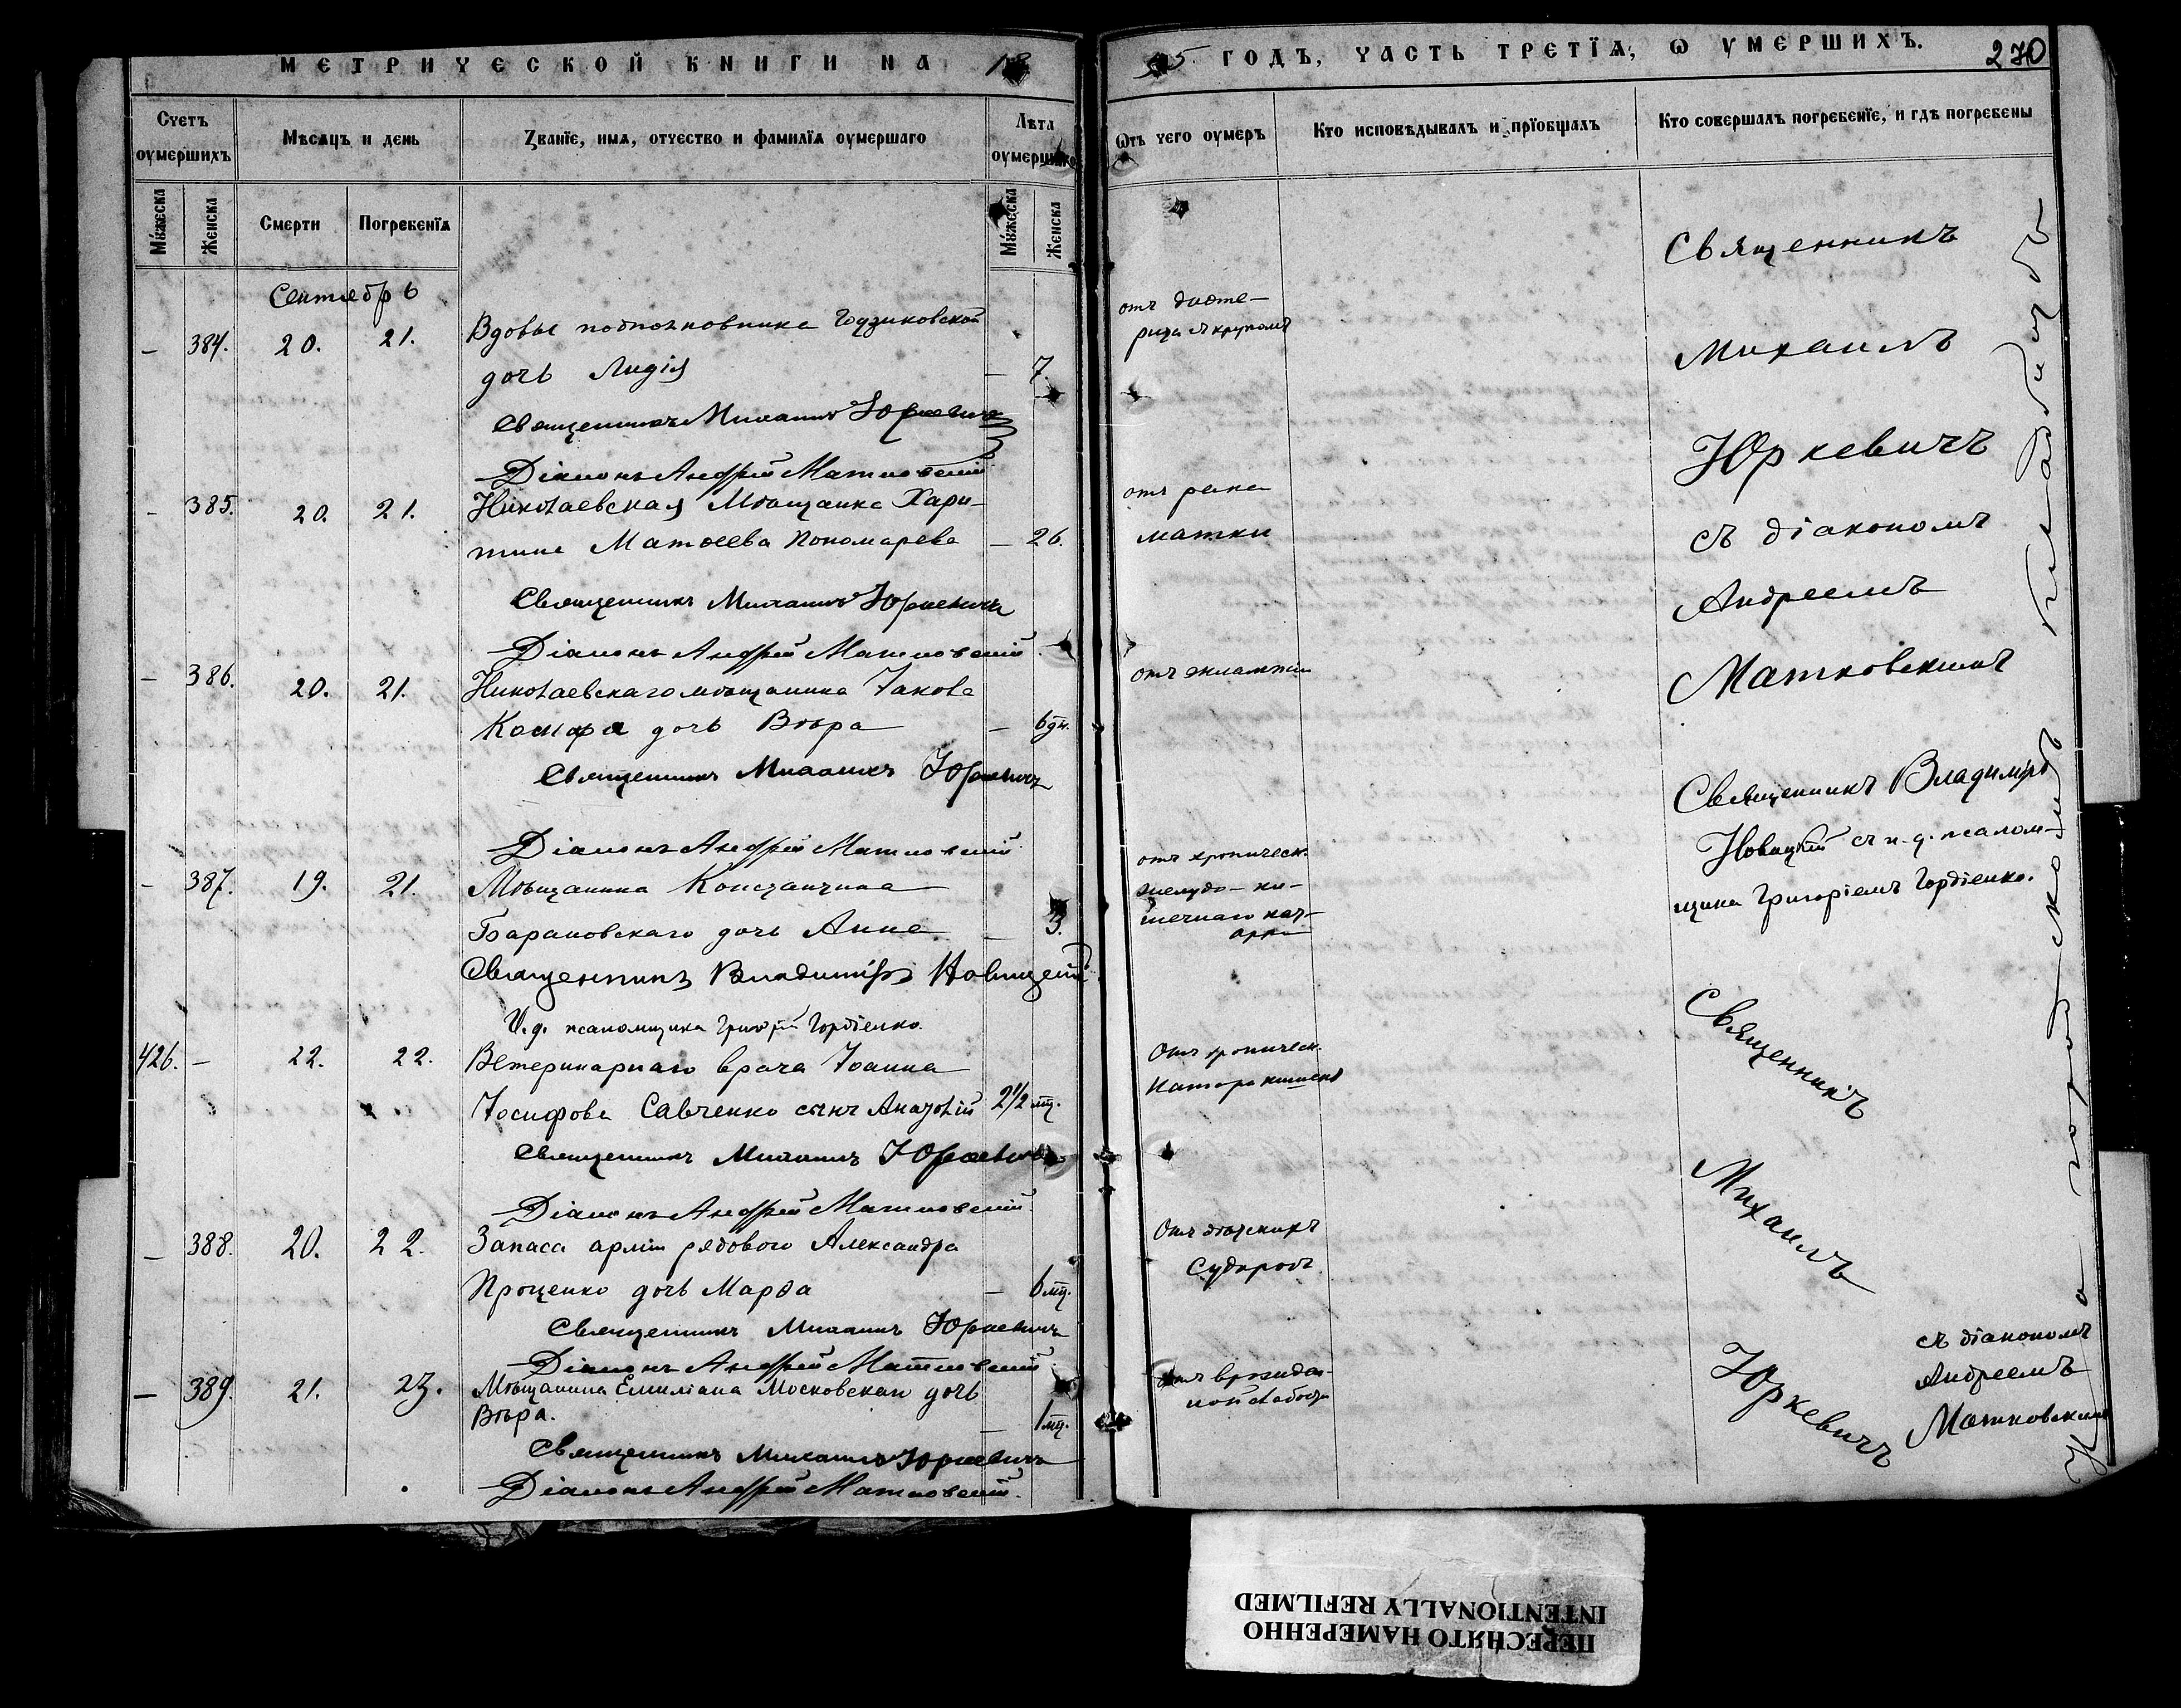 МЕТРИЧЕСКОЙ КНИГИ НА 18
95 ГОДЪ, ЧАСТЬ ТРЕТЇѦ, Ѡ УМЕРШИХЪ. 270
Счетъ оумершихъ
Мѣсяцъ и день
Званїе, имѧ, отчество и фамилїѧ оумершаго
Лѣта оумершаго
Ѿтъ чего оумеръ
Кто исповѣдывалъ и прїобщалъ
Кто совершалъ погребенїе, и гдѣ погребены
Мужеска
Женска
Смерти
Погребенїѧ
Мужеска
Женска
Сентябрь
— 384. 20. 21. Вдовы подполковника Годзиковской
дочь Лидія — 7
отъ дифте-
рита съ крупомъ
Священникъ Михаилъ Юркевичъ
Діаконъ Андрей Матковскій
— 385. 20. 21. Николаевская Мѣщанка Хари-
тина Матѳеева Пономарева — 26.
отъ рака
матки
Священникъ Михаилъ Юркевичъ
Діаконъ Андрей Матковскій
— 386. 20. 21. Николаевскаго мѣщанина Іакова
дочь Вѣра — 6 дн.
отъ эклампсіи
Священникъ Михаилъ Юркевичъ
Діаконъ Андрей Матковскій
— 387. 19. 21. Мѣщанина Константина
Барановскаго дочь Анна — 3.
отъ хроническ.
желудо-ки-
шечнаго кат-
арра
Священникъ Владиміръ Новицкій
И. д. псаломщика Григорій Гордіенко.
426. — 22. 22. Ветеринарнаго врача Іоанна
Іосифова Савченко сынъ Анатолій 2½ мц.
Отъ хроническ.
катара кишекъ
Священникъ Михаилъ Юркевичъ
Діаконъ Андрей Матковскій
— 388. 20. 22. Запаса арміи рядового Александра
Проценко дочь Марѳа — 6 мц.
Отъ дѣтскихъ
Судорогъ
Священникъ Михаилъ Юркевичъ
Діаконъ Андрей Матковскій
— 389. 21. 23. Мѣщанина Емиліана Московскаго дочь
Вѣра. — 1 мц.
Отъ врожден-
ной слабости
Священникъ Михаилъ Юркевичъ
Діаконъ Андрей Матковскій.
Священникъ
Михаилъ
Юркевичъ
съ діакономъ
Андреемъ
Матковскимъ
Священникъ Владиміръ
Новицкій съ и. д. псалом-
щика Григоріемъ Гордіенко.
Священникъ
Михаилъ
Юркевичъ
съ діакономъ
Андреемъ
Матковскимъ
На городскомъ кладбищѣ
ПЕРЕСНЯТО НАМЕРЕННО
INTENTIONALLY REFILMED